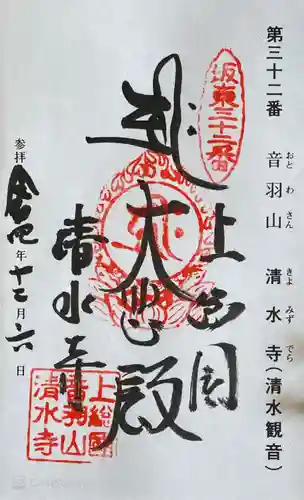 第三十二番 音羽山 清水寺(清水観音)
おとわさん きよみずでら
坂東三十二番
上総国
大悲殿
清水寺
参拝 令和四年十二月六日
上総国
音羽山
清水寺